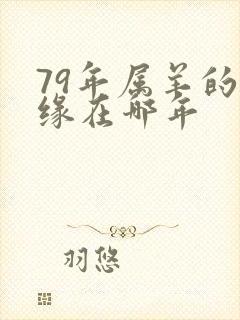 79年属羊的
缘在哪年
羽悠